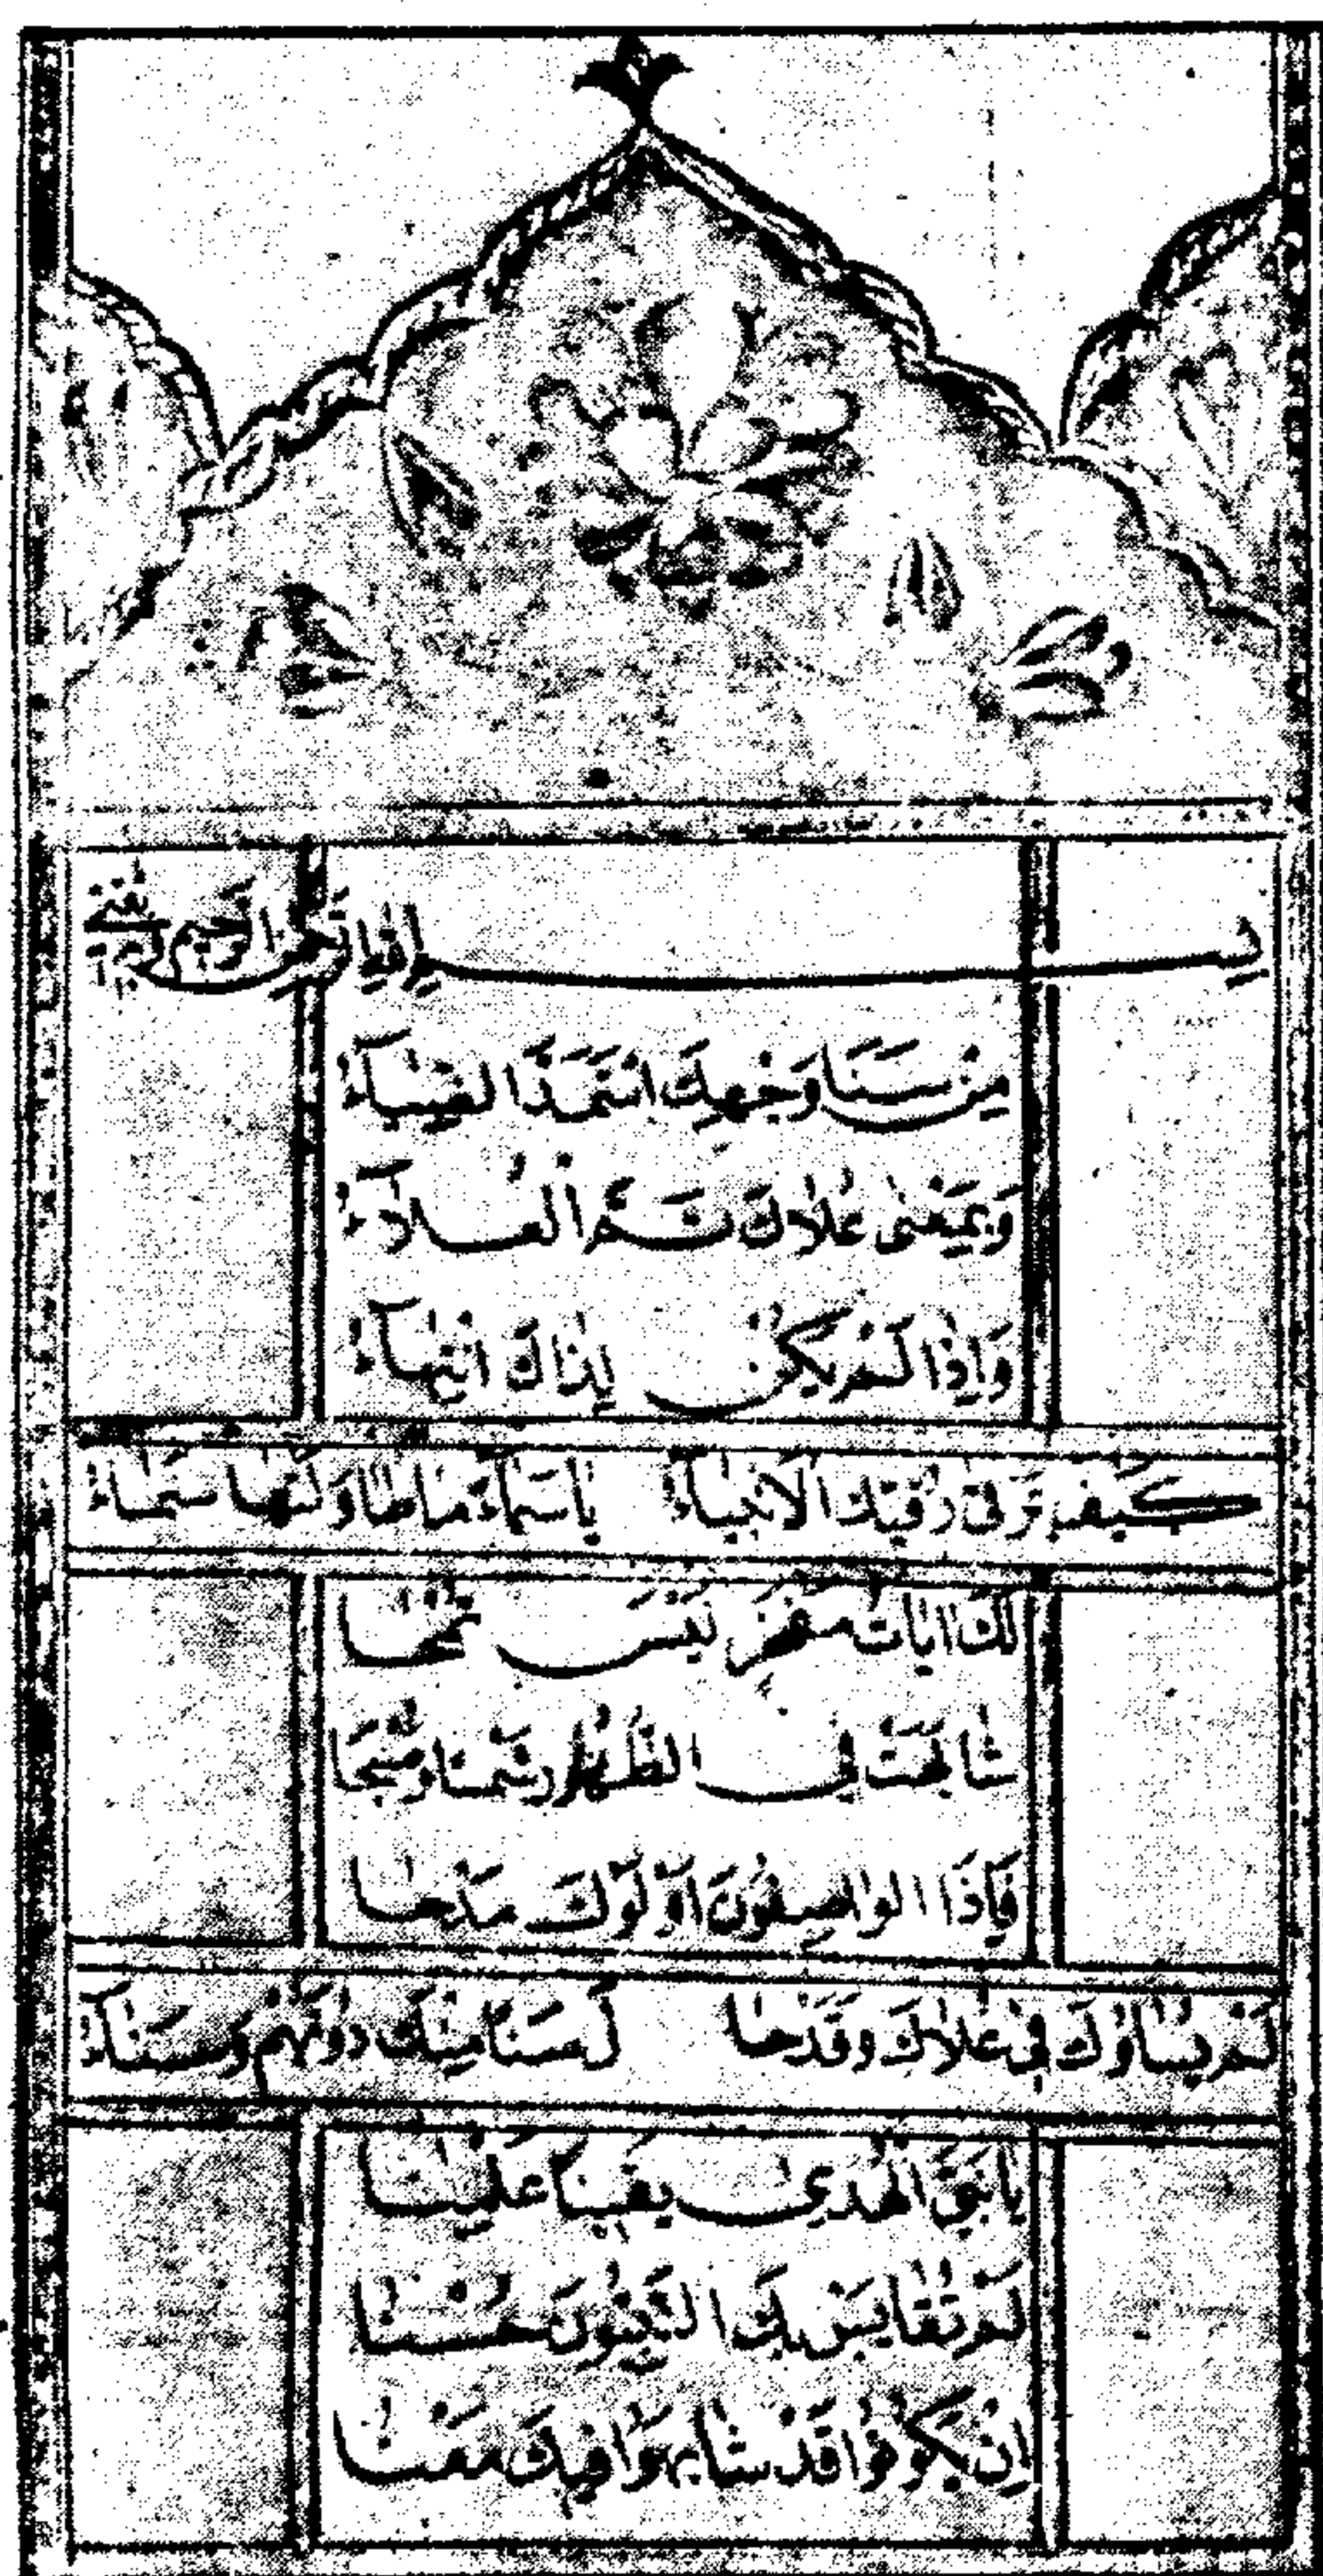 بسم الله الرحمن الرحيم
مِنْ سَنَا وَجْهِكَ اسْتَمَدَّ الضِّيَاءُ
وَبِمَعْنَى عُلَاكَ تَمَّ الْعُلَاءُ
وَإِذَا لَمْ يَكُنْ لِذَاكَ انْتِهَاءُ
كَيْفَ تَرْقَى رُقِيَّكَ الْأَنْبِيَاءُ يَا سَمَاءً مَا طَاوَلَتْهَا سَمَاءُ
لَكَ آيَاتُ مَفْخَرٍ لَيْسَ تُمْحَا
شَابَهَتْ فِي الظُّهُورِ شَمْسًا وَصُبْحَا
فَإِذَا الْوَاصِفُونَ أَوْلَوْكَ مَدْحَا
لَمْ يُسَاوُوكَ فِي عُلَاكَ وَقَدْ حَا لَ سَنًا مِنْكَ دُونَهُمْ وَسَنَاءُ
يَا نَبِيَّ الْهُدَى يَقِينًا عَلِمْنَا
لَمْ تُقَايَسْ بِكَ النَّبِيُّونَ حُسْنَا
إِنْ يَكُونُوا قَدْ شَابَهُوا فِيكَ مَعْنَا